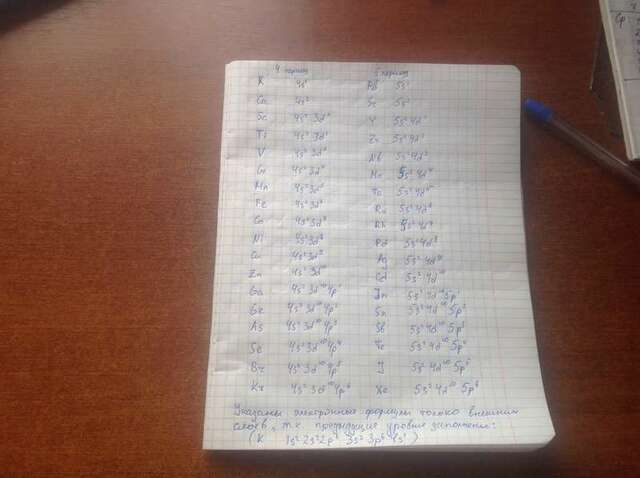 4 период 5 период
K 4s¹ Rb 5s¹
Ca 4s² Sr 5s²
Sc 4s² 3d¹ Y 5s² 4d¹
Ti 4s² 3d² Zr 5s² 4d²
V 4s² 3d³ Nb 5s² 4d³
Cr 4s² 3d⁴ Mo 5s² 4d⁴
Mn 4s² 3d⁵ Tc 5s² 4d⁵
Fe 4s² 3d⁶ Ru 5s² 4d⁶
Co 4s² 3d⁷ Rh 5s² 4d⁷
Ni 4s² 3d⁸ Pd 5s² 4d⁸
Cu 4s² 3d⁹ Ag 5s² 4d¹⁰
Zn 4s² 3d¹⁰ Cd 5s² 4d¹⁰
Ga 4s² 3d¹⁰ 4p¹ In 5s² 4d¹⁰ 5p¹
Ge 4s² 3d¹⁰ 4p² Sn 5s² 4d¹⁰ 5p²
As 4s² 3d¹⁰ 4p³ Sb 5s² 4d¹⁰ 5p³
Se 4s² 3d¹⁰ 4p⁴ Te 5s² 4d¹⁰ 5p⁴
Br 4s² 3d¹⁰ 4p⁵ J 5s² 4d¹⁰ 5p⁵
Kr 4s² 3d¹⁰ 4p⁶ Xe 5s² 4d¹⁰ 5p⁶
Указаны электронные формулы только внешних
слоев, т.к. предыдущие уровни заполнены:
(K 1s² 2s² 2p⁶ 3s² 3p⁶ 4s¹)
Ср